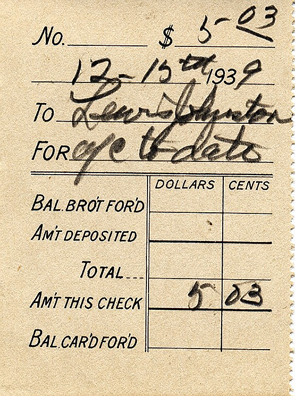 No. $ 5 03
12-15th 1939
To Lewis Johnston
FOR a/c to date
DOLLARS CENTS
BAL. BRO'T FOR'D
AM'T DEPOSITED
TOTAL...
AM'T THIS CHECK 5 03
BAL. CAR'D FOR'D